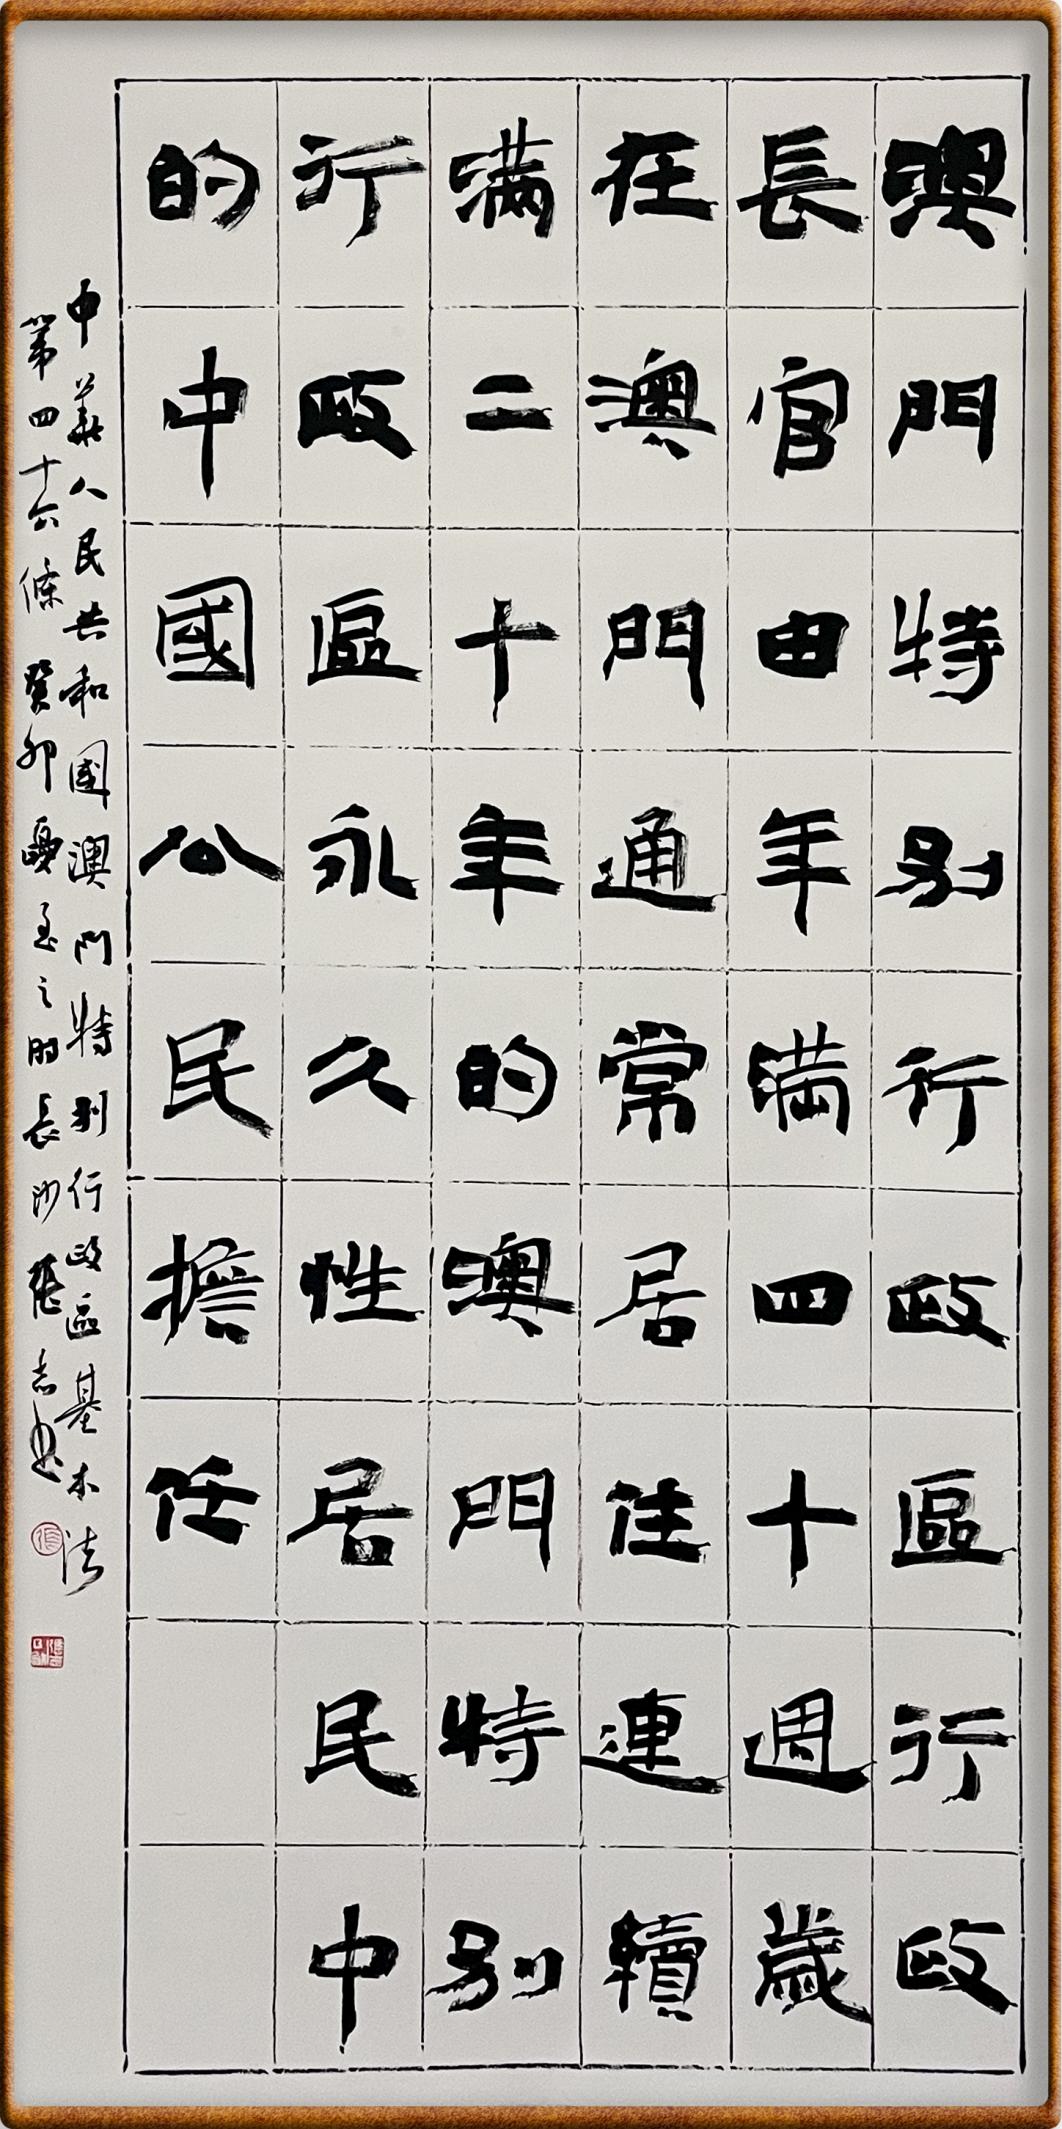 澳門特别行政區行政
長官由年滿四十週歲
在澳門通常居住連續
滿二十年的澳門特别
行政區永久性居民中
的中國公民擔任
中華人民共和國澳門特别行政區基本法
第四十六條 癸卯夏至之時長沙張志